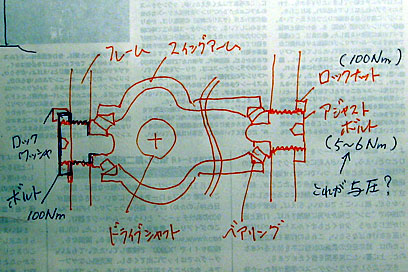 フレーム
スイングアーム
(100Nm)
ロックナット
アジャスト
ボルト
(5~6Nm)
これが与圧?
ロック
ワッシャ
ボルト
100Nm
ドライブシャフト
ベアリング